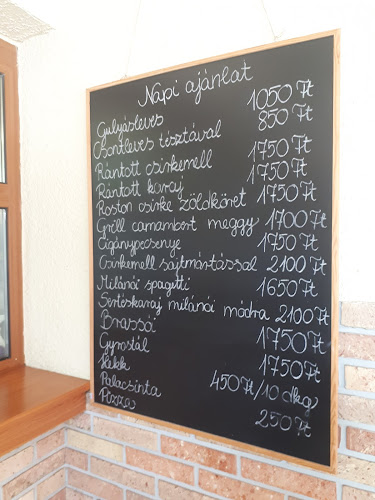 Napi ajánlat
Gulyásleves 1050 Ft
Csontleves tésztával 850 Ft
Rántott csirkemell 1750 Ft
Rántott karaj 1750 Ft
Roston csirke zöldköret 1750 Ft
Grill camambert meggy 1700 Ft
Cigánypecsenye 1750 Ft
Csirkemell sajtmártással 2100 Ft
Milánói spagetti 1650 Ft
Sertéskaraj milánói módra 2100 Ft
Brassói 1750 Ft
Gyrostál 1750 Ft
Hekk 450 Ft/10 dkg
Palacsinta 250 Ft
Pizza